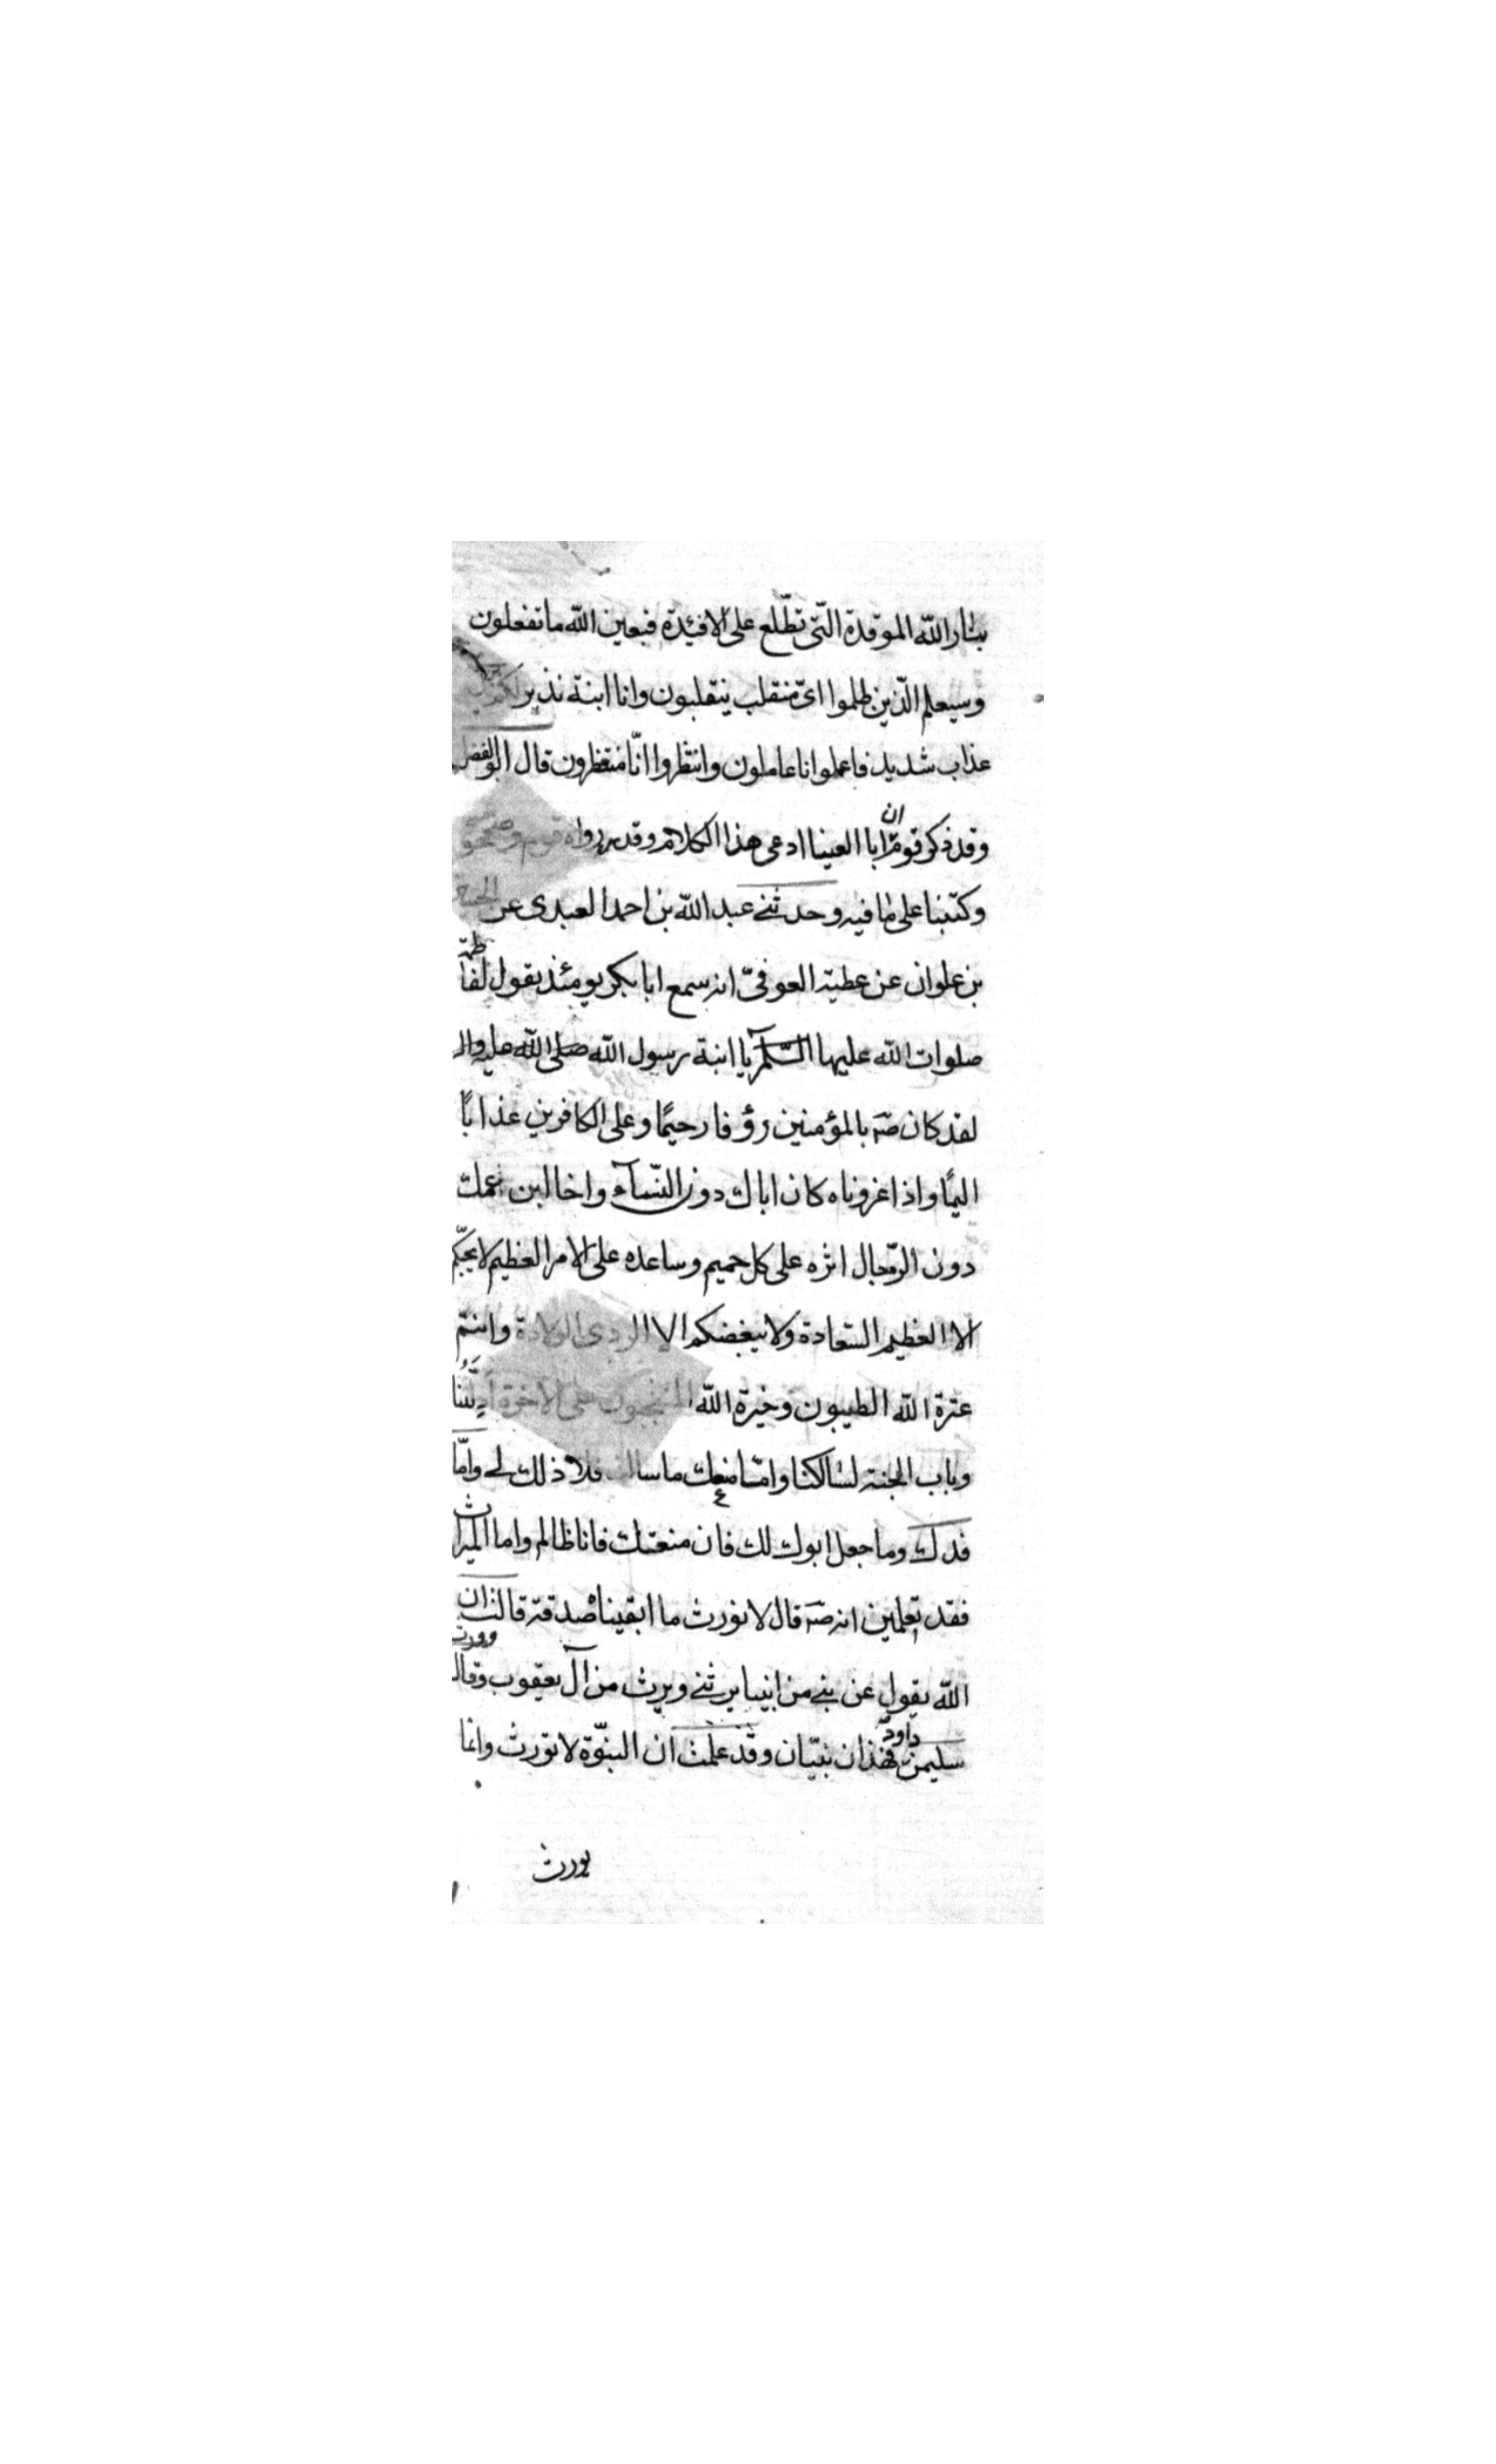 بنار الله الموقدة التّى تطّلع على الافئدة فبعين الله ما تفعلون
وسيعلم الّذين ظلموا اىّ منقلب ينقلبون وانا ابنة نذير لكم
عذاب شديد فاعملوا انا عاملون وانتظروا انّا منتظرون قال ابو الفضل
وقد ذكر قوم انّ ابا العينا ادعى هذا الكلام وقد رواه قوم وصححو
وكتبنا على ما فيه وحدثنى عبد الله بن احمد العبدى عن
بن علوان عن عطية العوفىّ انه سمع ابا بكر يومئذ يقول لفاطمة
صلوات الله عليها السّلم يا ابنة رسول الله صلى الله عليه واله
لقد كان صه بالمؤمنين رؤفا رحيمًا وعلى الكافرين عذابًا
اليمًا واذا عزوناه كان اباك دون النّسآء واخا ابن عمك
دون الرّجال اثره على كل حميم وساعده على الامر العظيم لا يحبّكم
الا العظيم السّعادة ولا يبغضكم الا الردى الولادة وانتم
عترة الله الطيبون وخيرة الله المنتجبون على الاخرة ادلّتنا
وباب الجنة لسالكنا وامّا منعك ما سالت فلا ذلك لى وامّا
فدك وما جعل ابوك لك فان منعتك فانا ظالم واما الميراث
فقد تعلمين انه صه قال لا نورث ما ابقيناه صدقة قالت ان
الله يقول عن نبى من انبيا يرثنى ويرث من آل يعقوب وقال وورث
سليمن داود فهذان نبيّان وقد علمت ان النبوّة لا تورث وانما
يورث